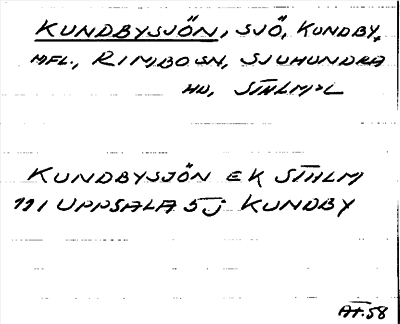 KUNDBYSJÖN, SJÖ, KUNDBY,
MFL., RIMBO SN, SJUHUNDRA
HD, STHLMS L
KUNDBYSJÖN EK STHLM
191 UPPSALA 5J KUNDBY
AT.58